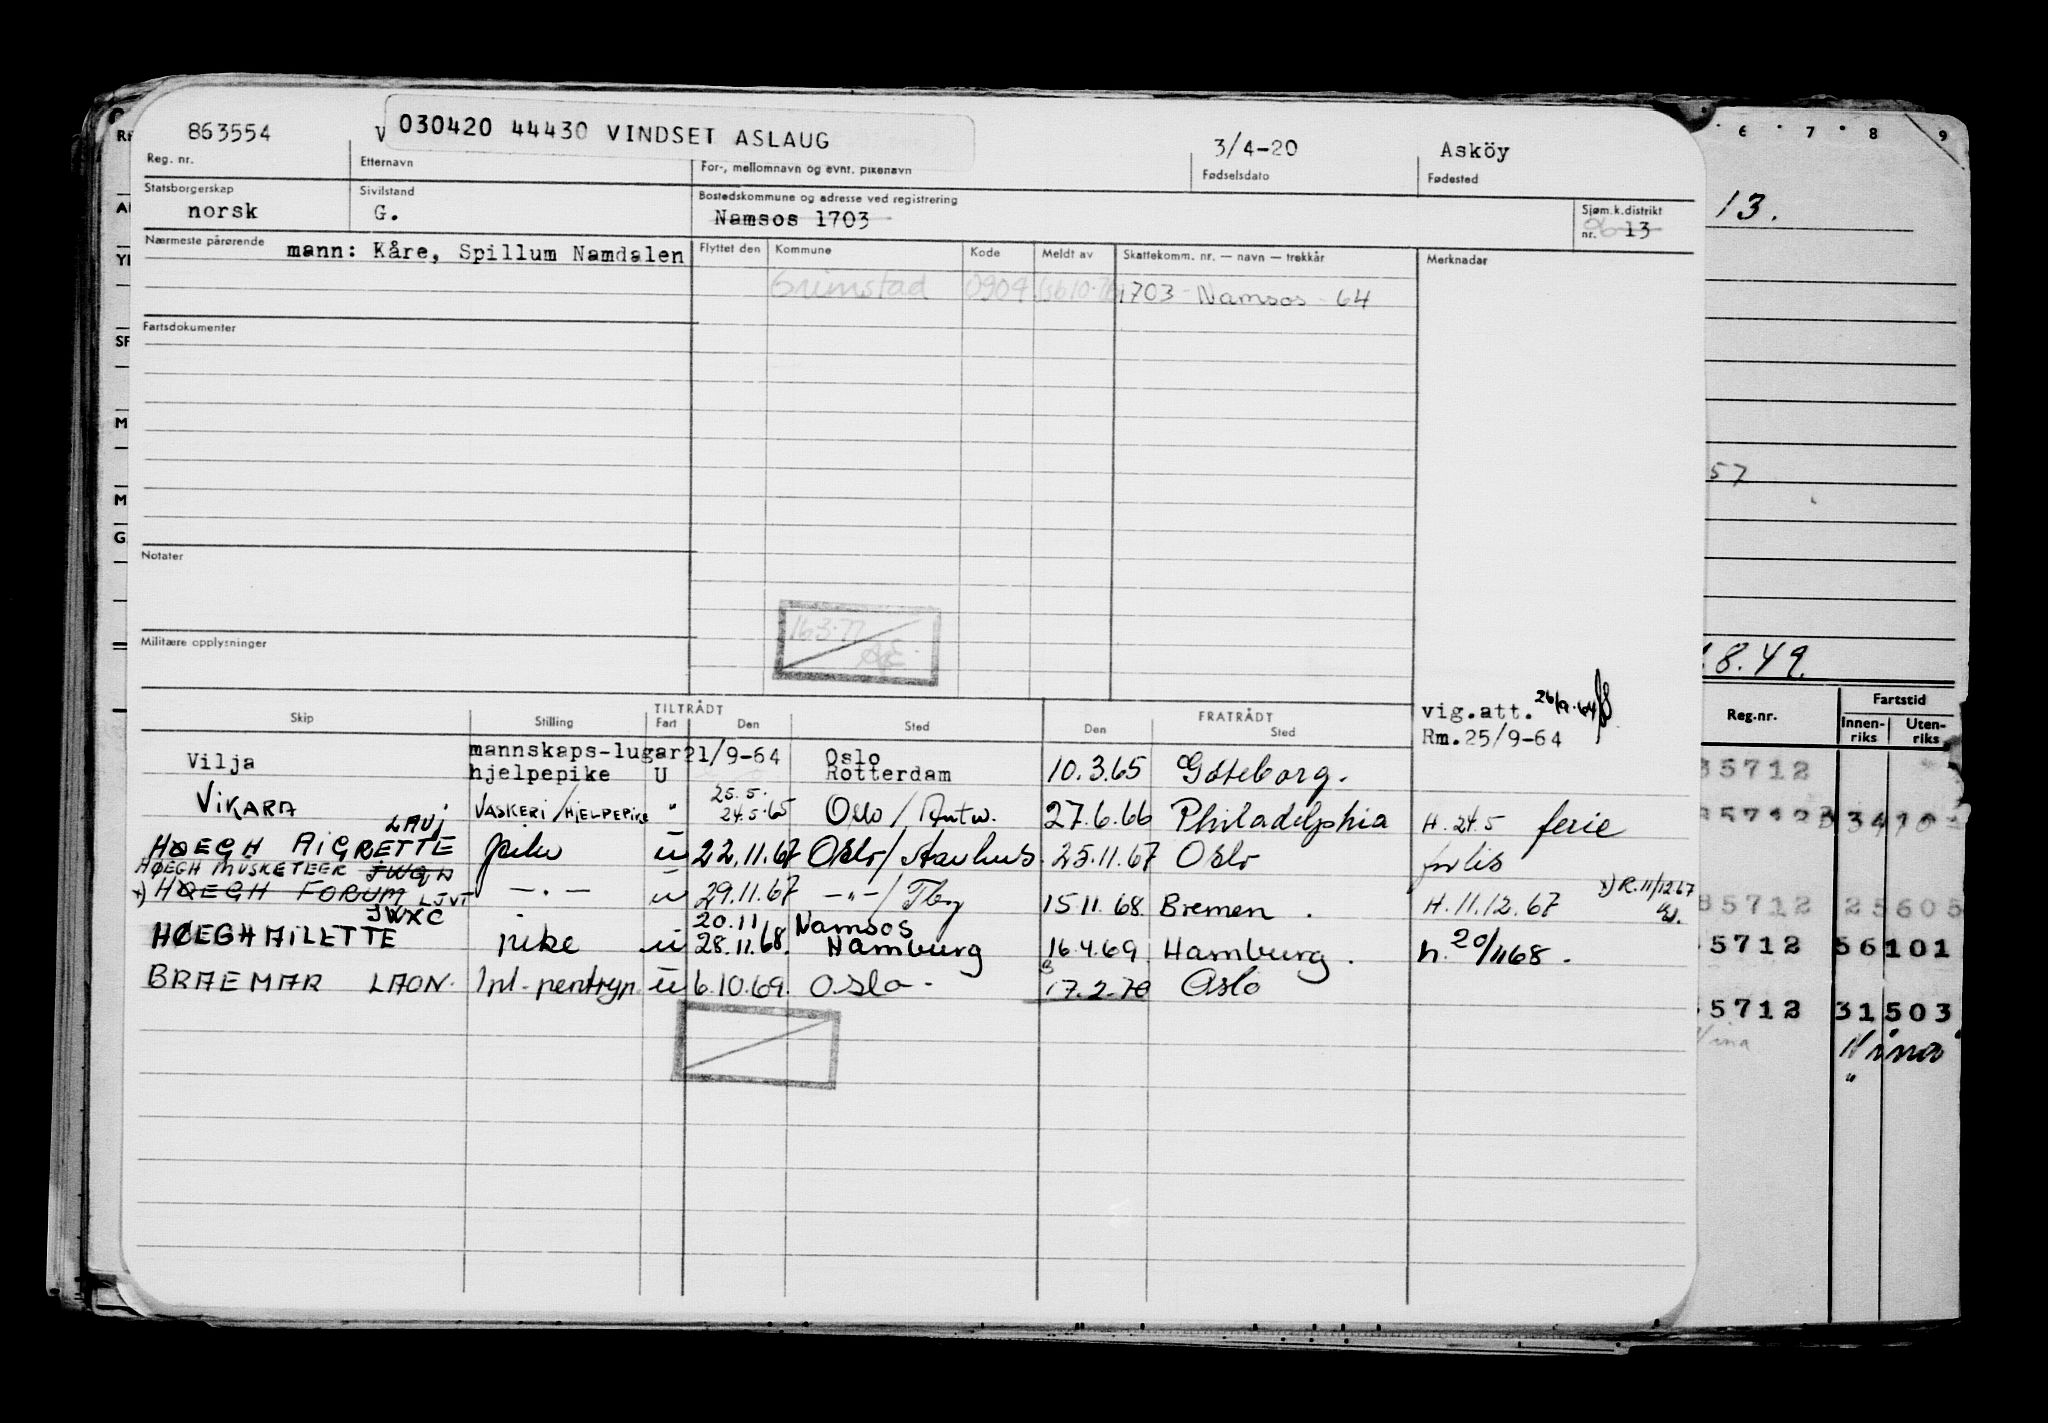 863554
030420 44430 VINDSET ASLAUG
3/4-20
Asköy
Reg. nr.
Etternavn
For-, mellomnavn og evnt. pikenavn
Fødselsdato
Fødested
Statsborgerskap
norsk
Sivilstand
G.
Bostedskommune og adresse ved registrering
Namsos 1703
Sjøm.k.distrikt
nr. 13
Nærmeste pårørende mann: Kåre, Spillum Namdalen
Flyttet den Kommune Kode Meldt av Skattekomm. nr. — navn — trekkår
Merknadar
Grimstad 0904 1703 - Namsos - 64
Fartsdokumenter
Notater
Militære opplysninger
163.77
vig.att. 26/9-64
Rm.25/9-64
TILTRÅDT FRATRÅDT
Skip Stilling Fart Den Sted Den Sted
Vilja mannskaps-lugar 21/9-64 Oslo
hjelpepike U Rotterdam 10.3.65 Göteborg.
VIKARA VASKERI/HJELPEPIKE " 25.5. 24.5.65 Oslo/Antw. 27.6.66 Philadelphia H. 24.5 ferie
LAUJ
HØEGH AIGRETTE pike u 22.11.67 Oslo/Aarhus. 25.11.67 Oslo forlis
HØEGH MUSKETEER JWQW
x) HØEGH FORUM LJVT — . — u 29.11.67 — " — / Tbg 15.11.68 Bremen. H. 11.12.67 x) R. 11/12 67
JWXC
HØEGH MILETTE pike u 20.11 28.11.68. Namsos Hamburg 16.4.69 Hamburg. h. 20/11 68.
BRAEMAR LAON. 1pl. pentryp. u 6.10.69. Oslo. 17.2.70 Oslo
6 7 8 9
13.
57
.8.49.
Reg.nr.
Fartstid
Innen-riks
Uten-riks
35712
35712 3 34 10
35712 25605
5712 56 101
5712 31 503
Nina
Nina
"